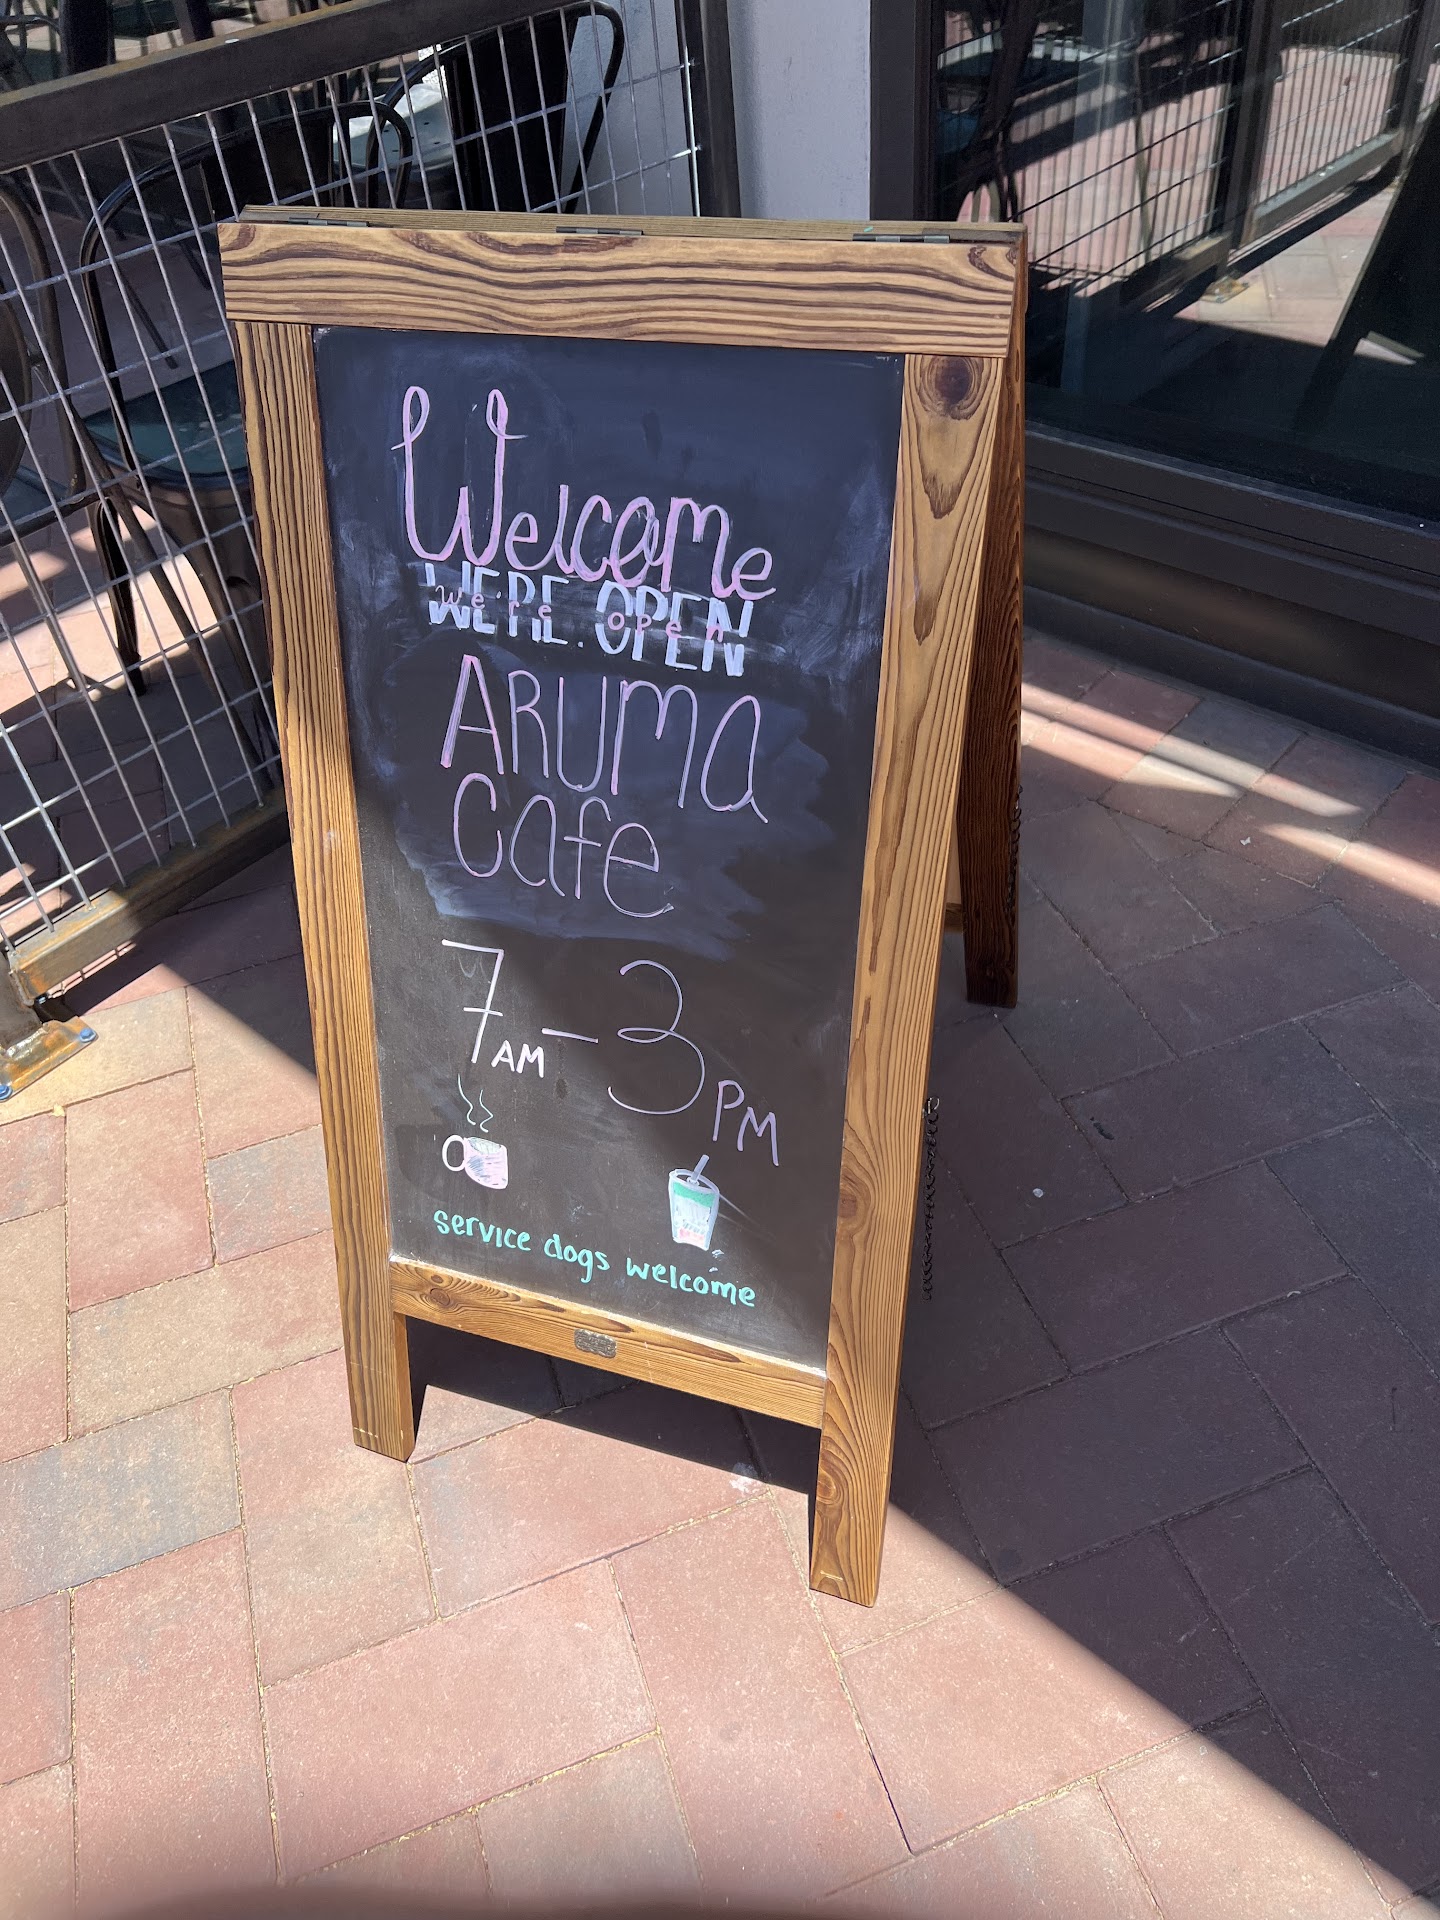 Welcome
WE'RE OPEN
we're open
ARUMA
Cafe
7AM – 3PM
service dogs welcome